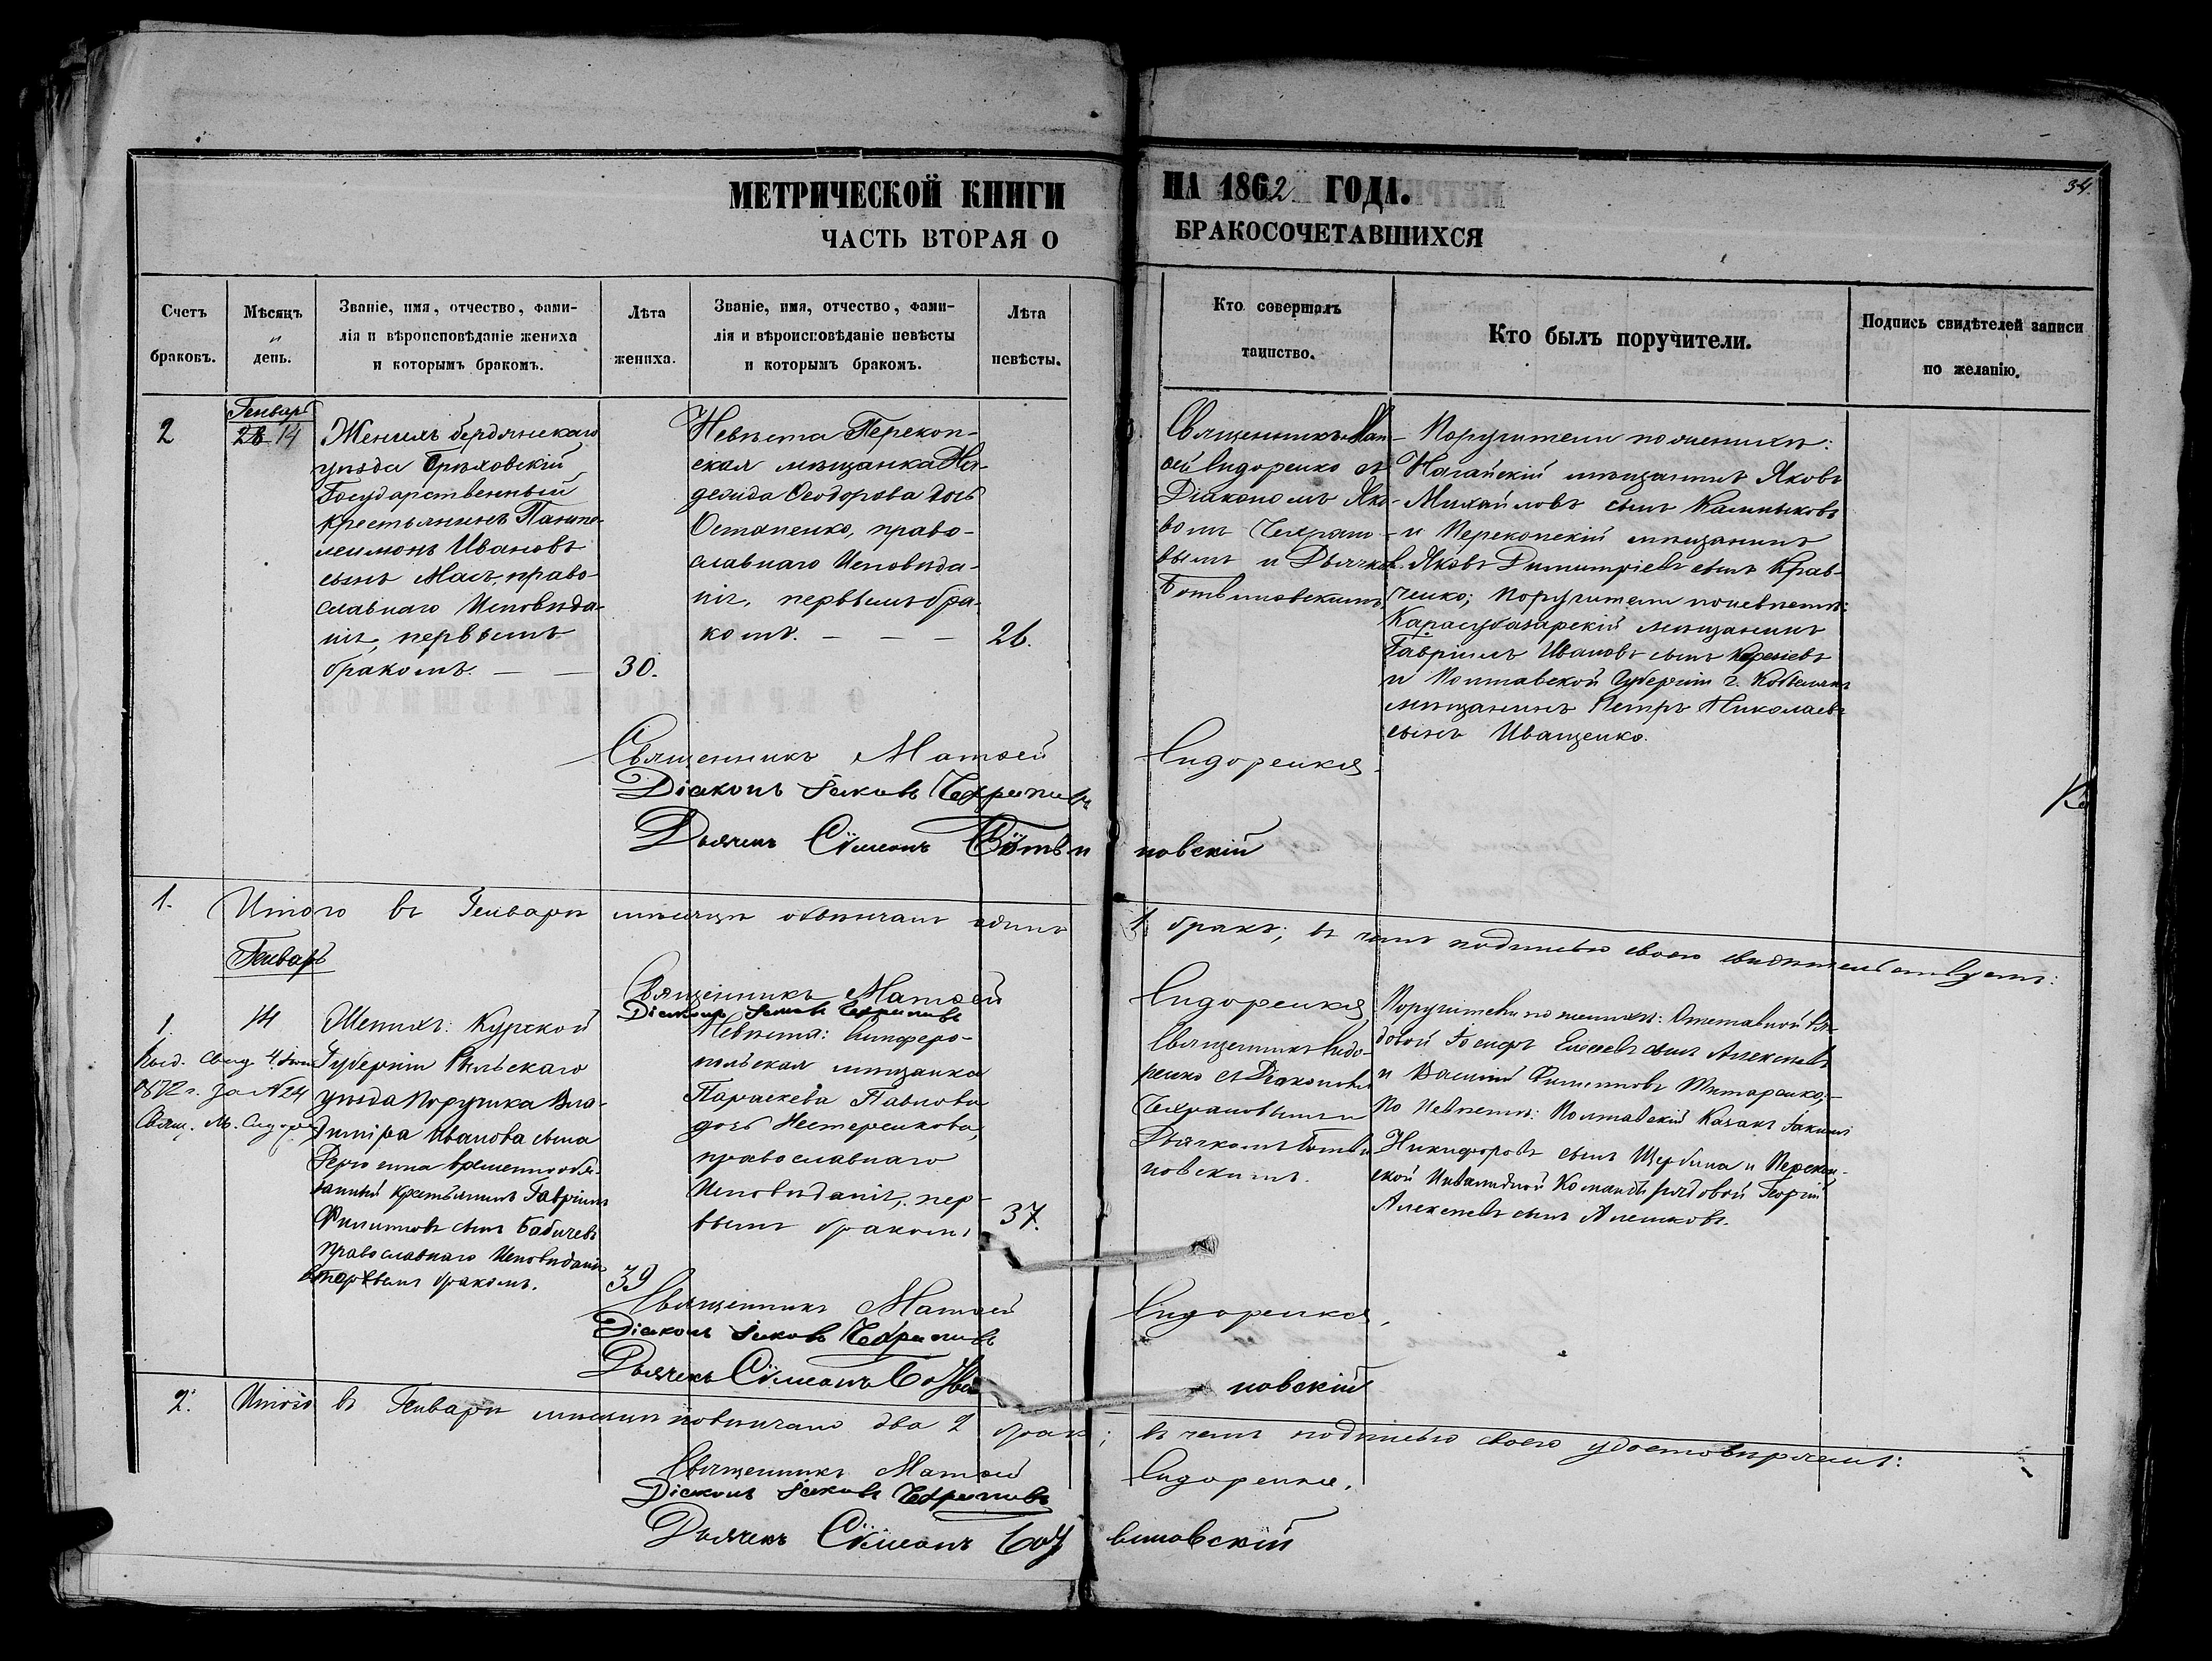 МЕТРИЧЕСКОЙ КНИГИ
НА 1862 ГОДА.
34.
ЧАСТЬ ВТОРАЯ О
БРАКОСОЧЕТАВШИХСЯ
Счетъ браковъ.
Мѣсяцъ и день.
Званіе, имя, отчество, фами-
лія и вѣроисповѣданіе жениха
и которымъ бракомъ.
Лѣта жениха.
Званіе, имя, отчество, фами-
лія и вѣроисповѣданіе невѣсты
и которымъ бракомъ.
Лѣта невѣсты.
Кто совершалъ
таинство.
Кто былъ поручители.
Подпись свидѣтелей записи
по желанію.
2
Генварь
26 14
Женихъ бердянскаго
уѣзда Орѣховскій
Государственный
крестьянинъ Панте-
леимонъ Ивановъ
сынъ Мась, право-
славнаго Исповѣда-
нія, первымъ
бракомъ. — —
30.
Невѣста Перекоп-
ская мѣщанка На-
дежда Ѳеодорова дочь
Остапенко, право-
славнаго Исповѣда-
нія, первымъ бра-
комъ. — — —
26.
Священникъ Мат-
ѳей Сидоренко съ
Діакономъ Яко-
вомъ Чехрано-
вымъ и Дьячком.
Ботвиновскимъ.
Поручители по женихѣ:
Ногайскій мѣщанинъ Яковъ
Михайловъ сынъ Калмыковъ
и Перекопскій мѣщанинъ
Яковъ Димитріевъ сынъ Крав-
ченко; Поручители по невѣстѣ:
Карасубазарскій мѣщанинъ
Гавріилъ Ивановъ сынъ
и Полтавской Губерніи г. Кобелякъ
мѣщанинъ Петръ Николаевъ
сынъ Иващенко.
Священникъ Матѳей Сидоренко.
Діаконъ Іаковъ Чехрановъ
Дьячекъ Сѵмеонъ Ботвиновскій
1. Итого въ Генварѣ мѣсяцѣ обвѣнчанъ одинъ 1 бракъ; въ чемъ подписью своею свидѣтельствуемъ:
Генварь
Священникъ Матѳей Сидоренко
Діаконъ Іаковъ Чехрановъ
1.
14
Выд. Свид 4
1872 г. за № 24
Свящ. М. Сидоре
Женихъ: Курской
Губерніи Рыльскаго
уѣзда Поручика Вла-
диміра Иванова сына
временнообя-
занный крестьянинъ Гавріилъ
Филиповъ сынъ Бабичевъ
православнаго Исповѣданія
вторымъ бракомъ.
39
Невѣста: Симферо-
польская мѣщанка
Параскева Павлова
дочь Нестеренкова,
православнаго
Исповѣданія, пер-
вымъ бракомъ
37.
Священникъ Сидо-
ренко съ Діакономъ
Чехрановымъ и
Дьячкомъ Ботви-
новскимъ.
Поручители по женихѣ: Отставной ря-
довой Іосифъ Елисеевъ сынъ Алексеевъ
и Василій Филиповъ Титаренко,
По Невѣстѣ: Полтавскій Казакъ Іакимъ
Никифоровъ сынъ Щербина и Перекоп-
ской Инвалидной Команды рядовой Георгій
Алексеевъ сынъ Алешковъ.
Священникъ Матѳей Сидоренко.
Діаконъ Іаковъ Чехрановъ
Дьячекъ Сѵмеонъ Ботвиновскій
2. Итого въ Генварѣ мѣсяцѣ повѣнчано два 2 брака; въ чемъ подписью своею удостовѣряемъ:
Священникъ Матѳей Сидоренко.
Діаконъ Іаковъ Чехрановъ
Дьячекъ Сѵмеонъ Ботвиновскій